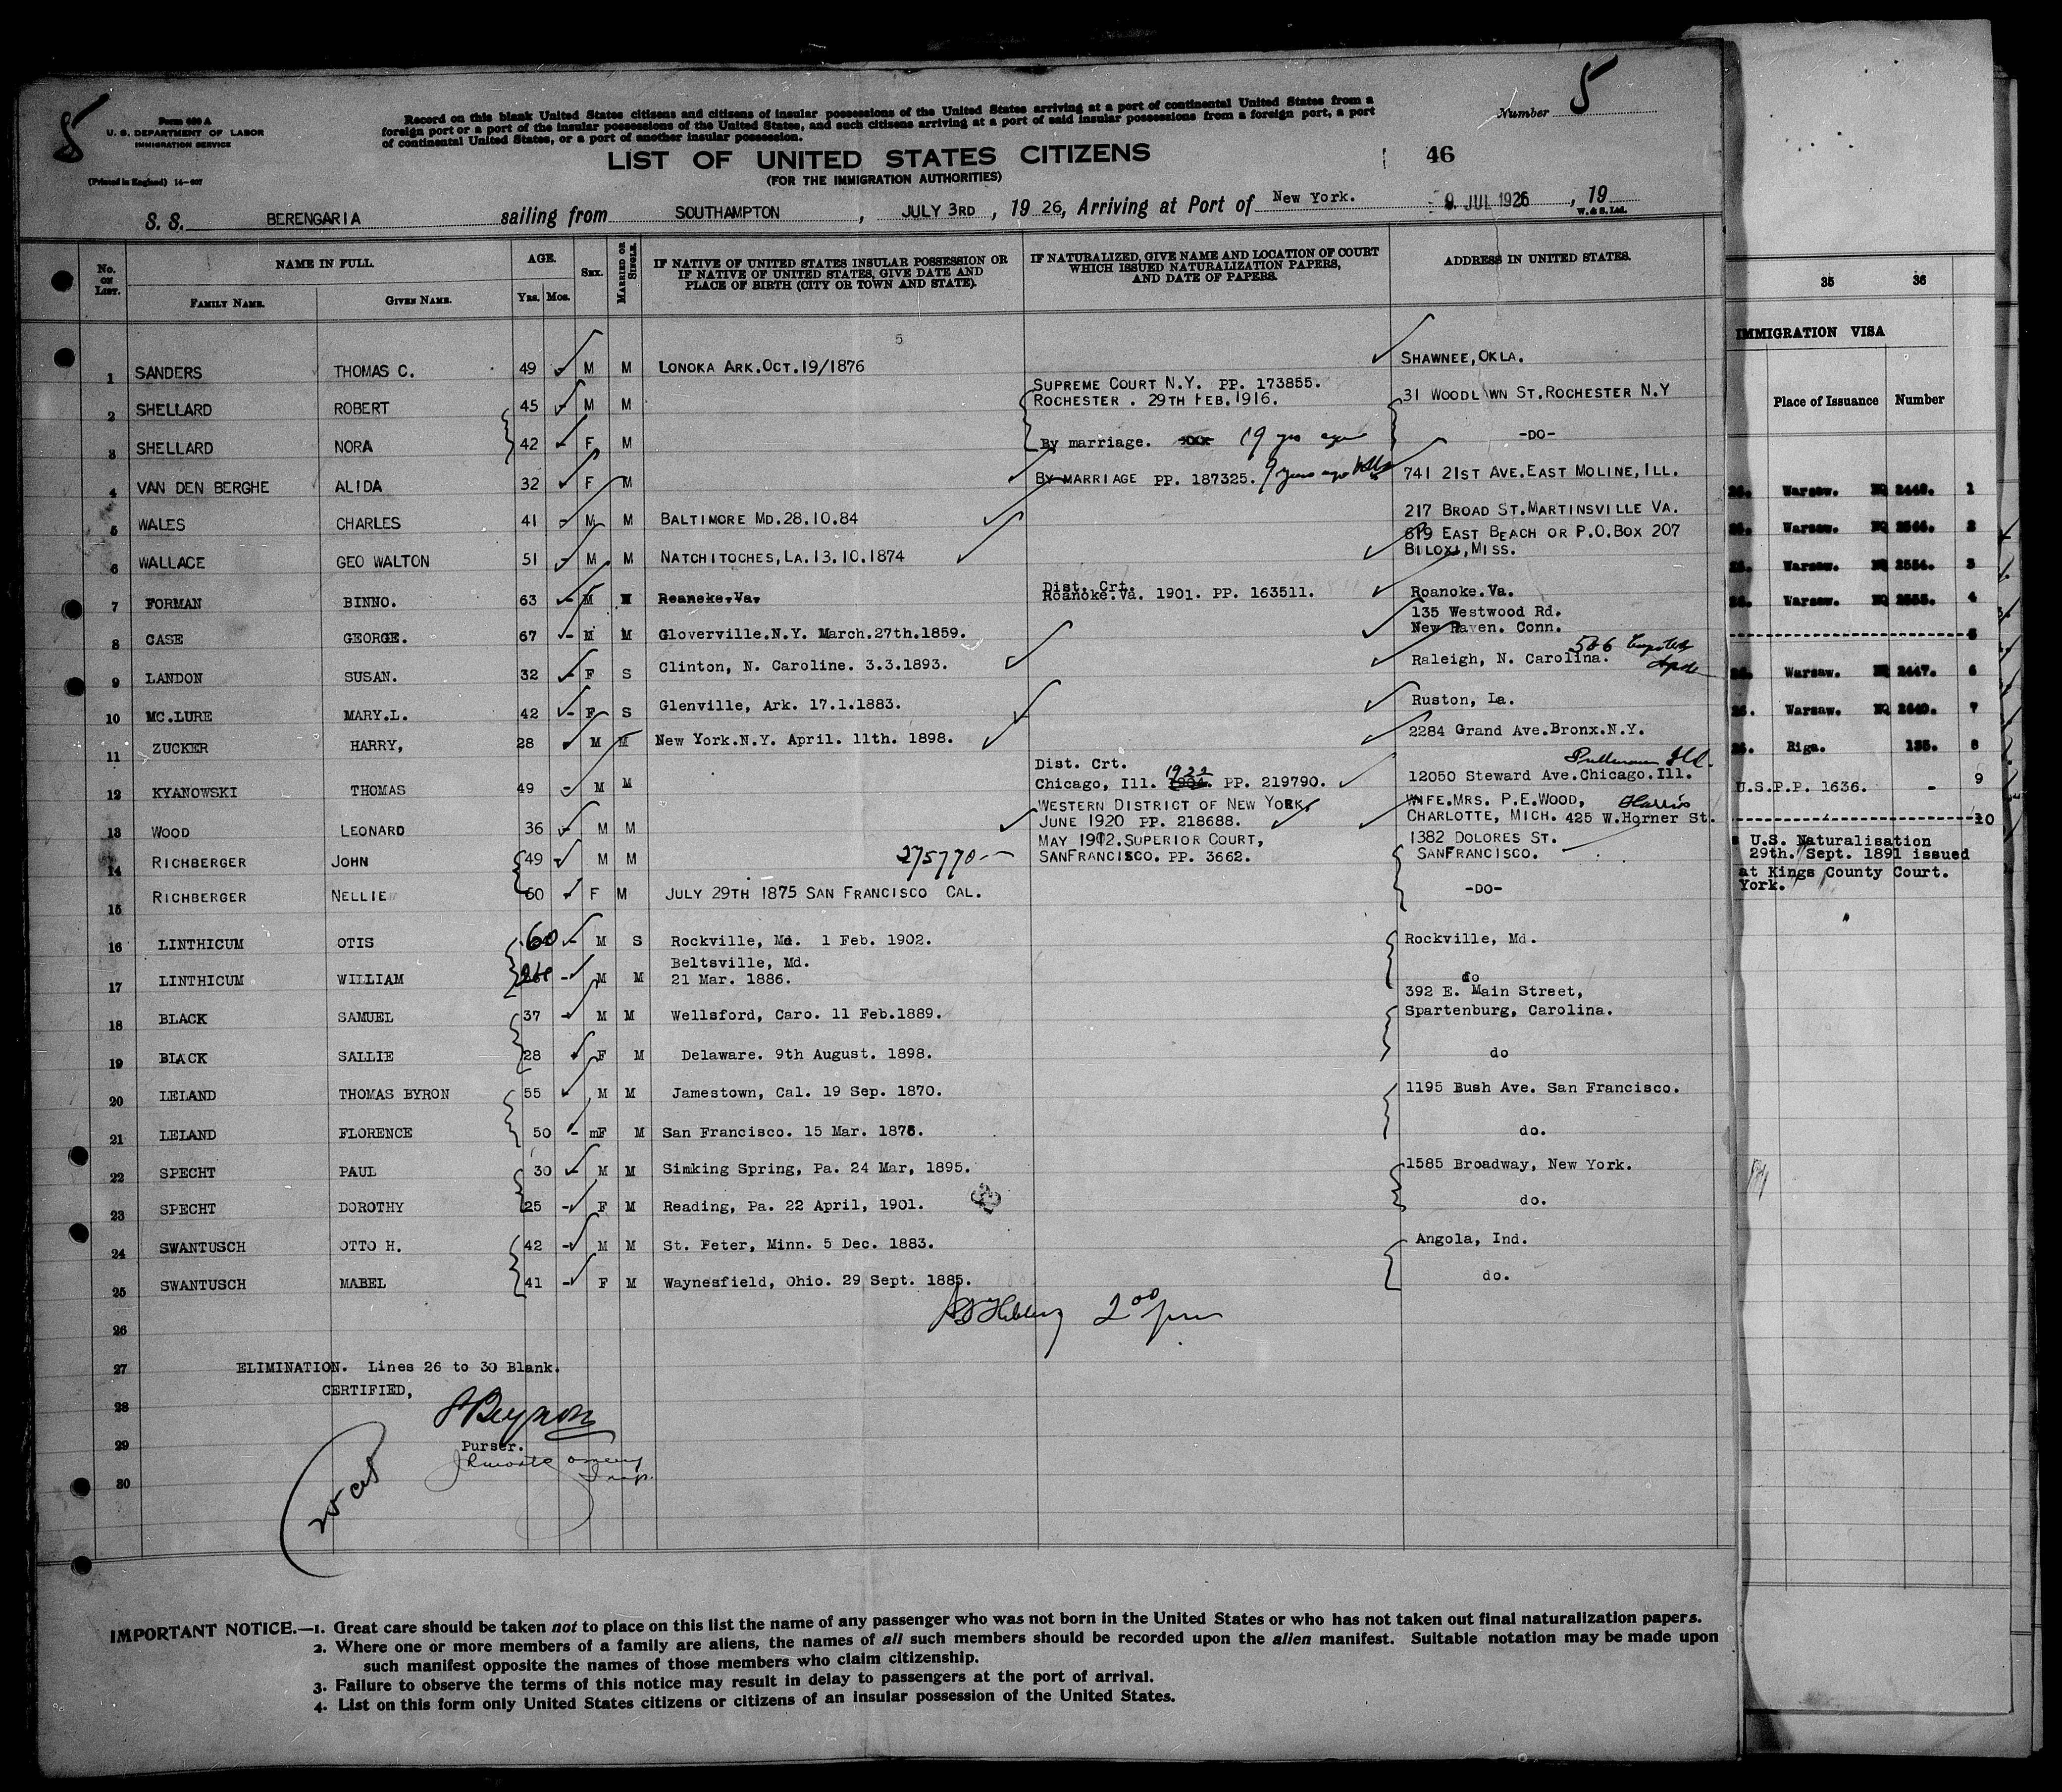 5
Form 630 A
U. S. DEPARTMENT OF LABOR
IMMIGRATION SERVICE
(Printed in England) 14—607
Record on this blank United States citizens and citizens of insular possessions of the United States arriving at a port of continental United States from a
foreign port or a port of the insular possessions of the United States, and such citizens arriving at a port of said insular possessions from a foreign port, a port
of continental United States, or a port of another insular possession.
Number 5
LIST OF UNITED STATES CITIZENS
(FOR THE IMMIGRATION AUTHORITIES)
46
S. S. BERENGARIA sailing from SOUTHAMPTON, JULY 3RD, 19 26, Arriving at Port of New York. 9 JUL 1926, 19
W. & S. Ltd.
No. ON LIST. NAME IN FULL. AGE. SEX. MARRIED OR SINGLE. IF NATIVE OF UNITED STATES INSULAR POSSESSION OR IF NATIVE OF UNITED STATES, GIVE DATE AND PLACE OF BIRTH (CITY OR TOWN AND STATE). IF NATURALIZED, GIVE NAME AND LOCATION OF COURT WHICH ISSUED NATURALIZATION PAPERS, AND DATE OF PAPERS. ADDRESS IN UNITED STATES.
FAMILY NAME. GIVEN NAME. Yrs. Mos.
5
1 SANDERS THOMAS C. 49 M M LONOKA ARK.OCT.19/1876 SHAWNEE,OKLA.
2 SHELLARD ROBERT 45 M M SUPREME COURT N.Y. PP. 173855. ROCHESTER . 29TH FEB.1916. 31 WOODL WN ST.ROCHESTER N.Y
3 SHELLARD NORA 42 F M By marriage. 19 yrs ago -DO-
4 VAN DEN BERGHE ALIDA 32 F M BY MARRIAGE PP. 187325. 9 years ago 741 21ST AVE.EAST MOLINE,ILL.
5 WALES CHARLES 41 M M BALTIMORE MD.28.10.84 217 BROAD ST.MARTINSVILLE VA.
6 WALLACE GEO WALTON 51 M M NATCHITOCHES,LA.13.10.1874 619 EAST BEACH OR P.O.BOX 207 BILOXI,MISS.
7 FORMAN BINNO. 63 M M Roanoke.Va. Dist. Crt. Roanoke.Va. 1901. PP. 163511. Roanoke.Va.
8 CASE GEORGE. 67 M M Gloverville.N.Y. March.27th.1859. 135 Westwood Rd. New Haven. Conn.
9 LANDON SUSAN. 32 F S Clinton, N. Caroline. 3.3.1893. Raleigh, N. Carolina. 506
10 MC.LURE MARY.L. 42 F S Glenville, Ark. 17.1.1883. Ruston, La.
11 ZUCKER HARRY, 28 M M New York.N.Y. April. 11th. 1898. 2284 Grand Ave.Bronx.N.Y.
12 KYANOWSKI THOMAS 49 M M Dist. Crt. Chicago, Ill. 1904. 1922 PP. 219790. Pullman Ill. 12050 Steward Ave.Chicago.Ill.
13 WOOD LEONARD 36 M M WESTERN DISTRICT OF NEW YORK JUNE 1920 PP. 218688. WIFE.MRS. P.E.WOOD, Harris CHARLOTTE, MICH. 425 W.Horner St.
14 RICHBERGER JOHN 49 M M 275770 MAY 1902.SUPERIOR COURT, SANFRANCISCO. PP. 3662. 1382 DOLORES ST. SANFRANCISCO.
15 RICHBERGER NELLIE 50 F M JULY 29TH 1875 SAN FRANCISCO CAL. -DO-
16 LINTHICUM OTIS 60 M S Rockville, Md. 1 Feb. 1902. Rockville, Md.
17 LINTHICUM WILLIAM M M Beltsville, Md. 21 Mar. 1886. do
18 BLACK SAMUEL 37 M M Wellsford, Caro. 11 Feb.1889. 392 E. Main Street, Spartenburg, Carolina.
19 BLACK SALLIE 28 F M Delaware. 9th August. 1898. do
20 LELAND THOMAS BYRON 55 M M Jamestown, Cal. 19 Sep. 1870. 1195 Bush Ave. San Francisco.
21 LELAND FLORENCE 50 mF M San Francisco. 15 Mar. 1876. do.
22 SPECHT PAUL 30 M M Simking Spring, Pa. 24 Mar, 1895. 1585 Broadway, New York.
23 SPECHT DOROTHY 25 F M Reading, Pa. 22 April, 1901. do.
24 SWANTUSCH OTTO H. 42 M M St. Peter, Minn. 5 Dec. 1883. Angola, Ind.
25 SWANTUSCH MABEL 41 F M Waynesfield, Ohio. 29 Sept. 1885. do.
26 2 00 pm
27 ELIMINATION. Lines 26 to 30 Blank.
CERTIFIED,
28
29 Purser.
30
IMPORTANT NOTICE.—1. Great care should be taken not to place on this list the name of any passenger who was not born in the United States or who has not taken out final naturalization papers.
2. Where one or more members of a family are aliens, the names of all such members should be recorded upon the alien manifest. Suitable notation may be made upon
such manifest opposite the names of those members who claim citizenship.
3. Failure to observe the terms of this notice may result in delay to passengers at the port of arrival.
4. List on this form only United States citizens or citizens of an insular possession of the United States.
35 36
IMMIGRATION VISA
Place of Issuance Number
Warsaw. 2448. 1
Warsaw. 2566. 2
Warsaw. 2554. 3
Warsaw. 2555. 4
5
Warsaw. 2447. 6
Warsaw. 2640. 7
Riga. 135. 8
U.S.P.P. 1636. - 9
10
U.S. Naturalisation
29th. Sept. 1891 issued
at Kings County Court.
York.